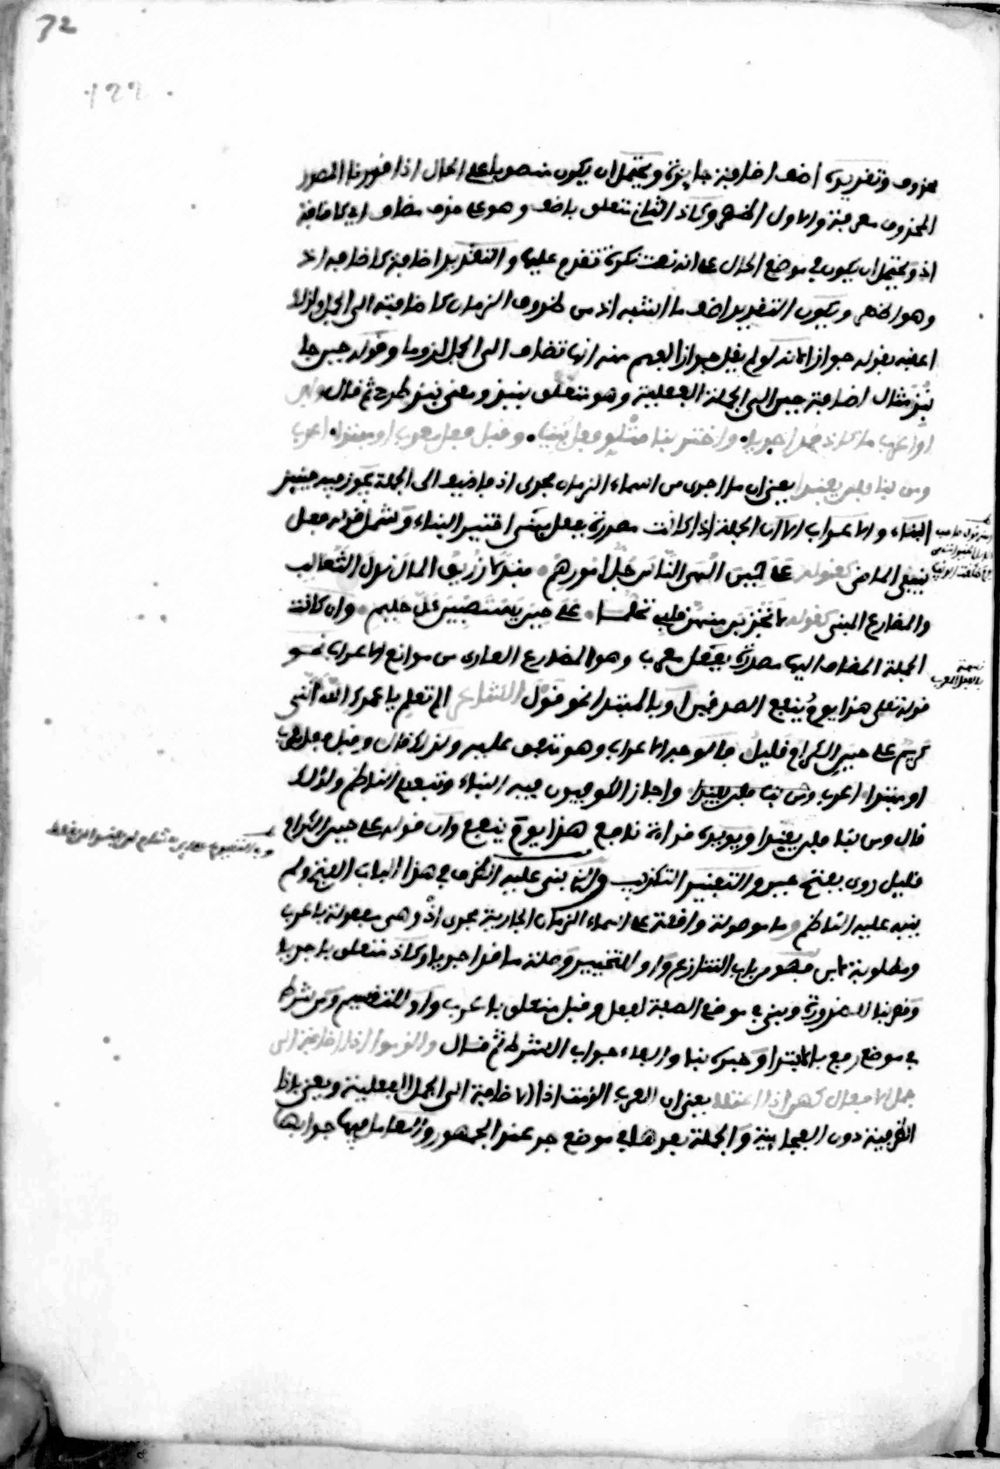 32
122
محذوف وتقديره اضف اضافة جايزة ويحتمل ان يكون منصوبا على الحال اذا قدرنا المصدر
المحذوف معرفة والاول اظهر وكاذ الثاني متعلق باضف وهو على حذف مضاف اي كاضافة
اذ ويحتمل ان يكون في موضع الحال على انه نعت نكرة تقدم عليها والتقدير اضافة كاضافة اذ
وهو اظهر ويكون التقدير اضف ما اشبه اذ من ظروف الزمان كاضافته الى الجمل ولذلك
اعقبه بقوله جوازا لانه لو لم يقل جوازا لفهم منه انها تضاف الى الجمل لزوما وقوله حين جا
نبذ مثال اضافة حين الى الجملة الفعلية وهو متعلق بنبذ ومعنى نبذ طرح ثم قال وابن
او اعرب ما كاذ قد اجريا واختر بنا متلو فعل بنيا وقبل فعل معرب او مبتدا اعرب
ومن بنا فلن يفندا يعني ان ما اجرى من اسماء الزمان مجرى اذ فاضيف الى الجملة يجوز فيه حينئذ
البناء والاعراب الا ان الجملة اذا كانت مصدرة بفعل بني اختير البناء وشمل قوله فعل
بني الماضي كقوله على حين الهى الناس جل امورهم فندلا زريق المال ندل الثعالب
والمضارع المبني كقوله لاجتذبن منهن قلبي تحلما على حين يستصبين كل حليم وان كانت
الجملة المضاف اليها مصدرة بفعل معرب وهو المضارع العاري من موانع الاعراب نحو
قوله تعلى هذا يوم ينفع الصدقين او بالمبتدا نحو قول الشاعر الم تعلم يا عمرك الله انني
كريم على حين الكرام قليل فالوجه الاعراب وهو متفق عليه ولذلك قال وقبل فعل معرب
او مبتدا اعرب ومن بنا فلن يفندا واجاز الكوفيون فيه البناء وتبعهم الناظم ولذلك
قال ومن بنا فلن يفندا ويؤيده قراءة نافع هذا يوم ينفع وان قوله على حين الكرام
قليل روي بفتح حين والتفنيد التكذيب والذي بني عليه الظرف في هذا الباب الفتح ولم
ينبه عليه الناظم وما موصولة واقعة على اسماء الزمان الجارية مجرى اذ وهي مفعولة باعرب
ومطلوبة لابن فهو من باب التنازع واو للتخيير وصلة ما قد اجريا وكاذ متعلق باجريا
وقصر بنا للضرورة وبني في موضع الصفة لفعل وقبل متعلق باعرب واو للتقسيم ومن شرط
في موضع رفع بالابتدا وخبره بنا والفاء جواب الشرط ثم قال والزموا اذا اضافة الى
جمل الافعال كهن اذا اعتلى يعني ان العرب الزمت اذا الاضافة الى الجمل الفعلية ويعني باذا
الظرفية دون الفجاءية والجملة بعدها في موضع جر عند الجمهور والعامل فيها جوابها